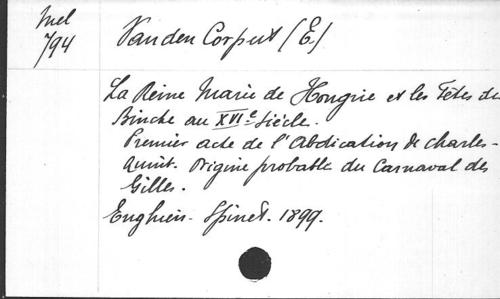 Mel
794
Van den Corput (E)
La Reine Marie de Hongrie et les Fêtes de
Binche au XVIe Siécle.
Premier acte de l'Abdication de Charles-
Quint. Origine probable du Carnaval des
Gilles.
Enghien - Spinet. 1899.